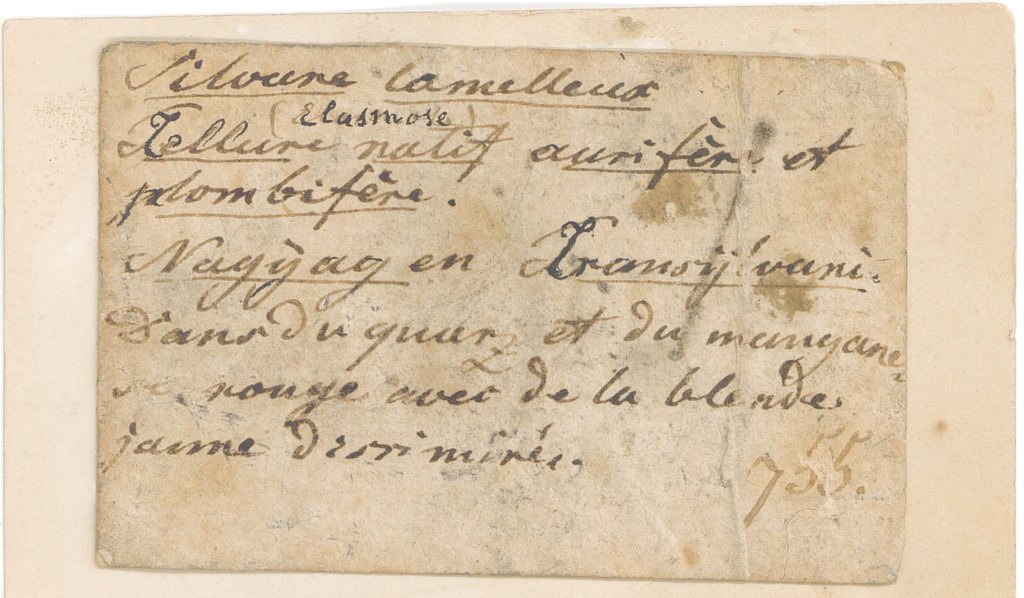 Silvane lamelleux
(Elasmose)
Tellure natif aurifère et
plombifère.
Nagÿag en Transÿlvani.
Dans du quarz et du mangane-
se rouge avec de la blende
jaune
755.